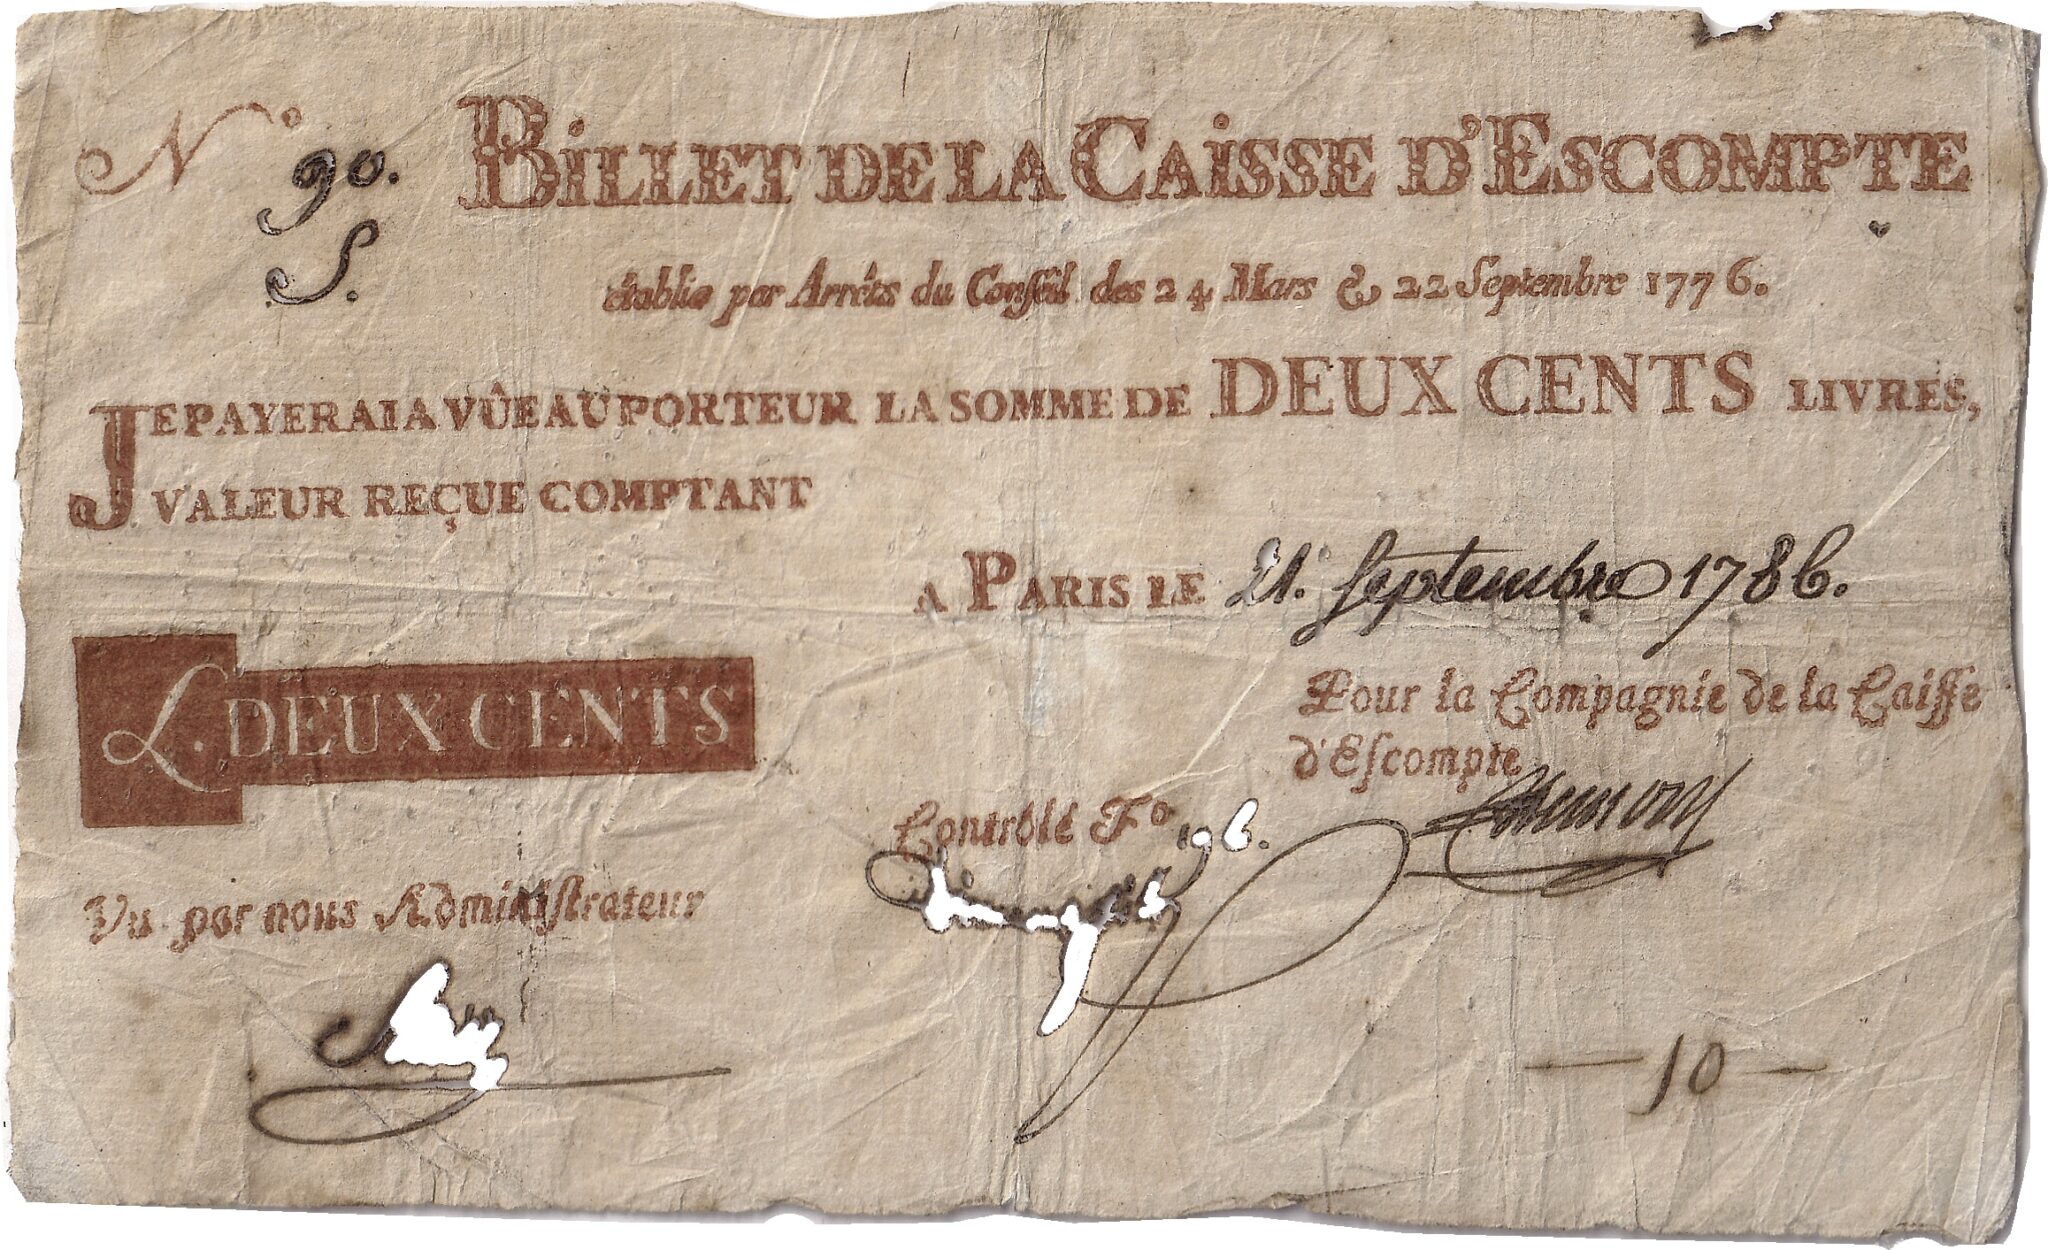 N° 90. BILLET DE LA CAISSE D'ESCOMPTE
S.
établie par Arrêts du Conseil des 24 Mars & 22 Septembre 1776.
JE PAYERAI A VÛE AU PORTEUR LA SOMME DE DEUX CENTS LIVRES,
VALEUR REÇUE COMPTANT
A PARIS LE 21. Septembre 1786.
L. DEUX CENTS
Pour la Compagnie de la Caisse
d'Escompte
Contrôlé F° 196.
Vu par nous Administrateur
— 10 —